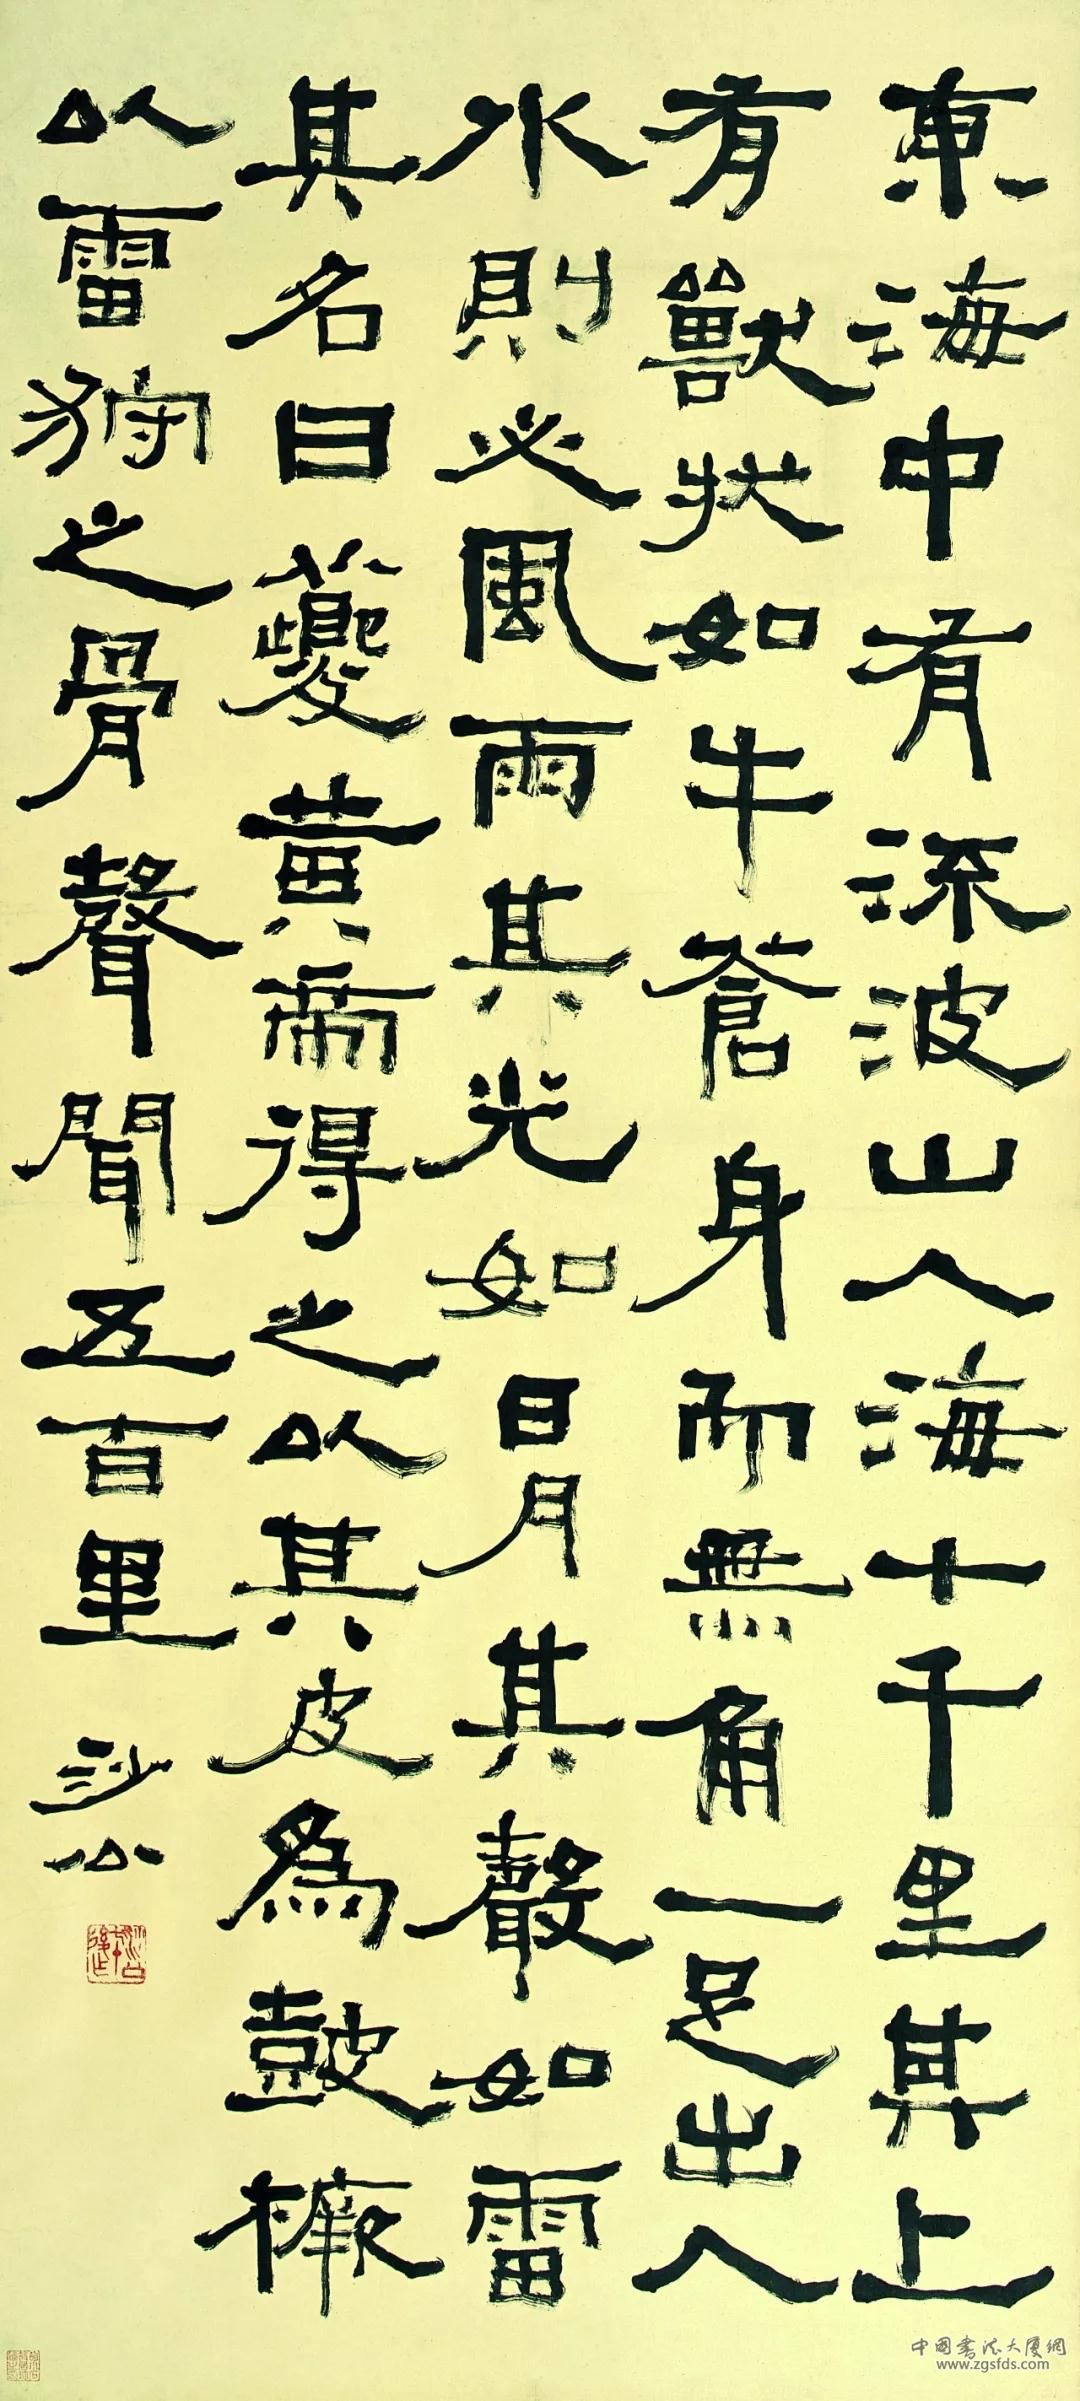 東海中有流波山入海十千里其上
有獸狀如牛蒼身而無角一足出入
水則必風雨其光如日月其聲如雷
其名曰夔黃帝得之以其皮為鼓橛
以雷狩之骨聲聞五百里
沙公
中国书法大厦網
www.zgsfds.com